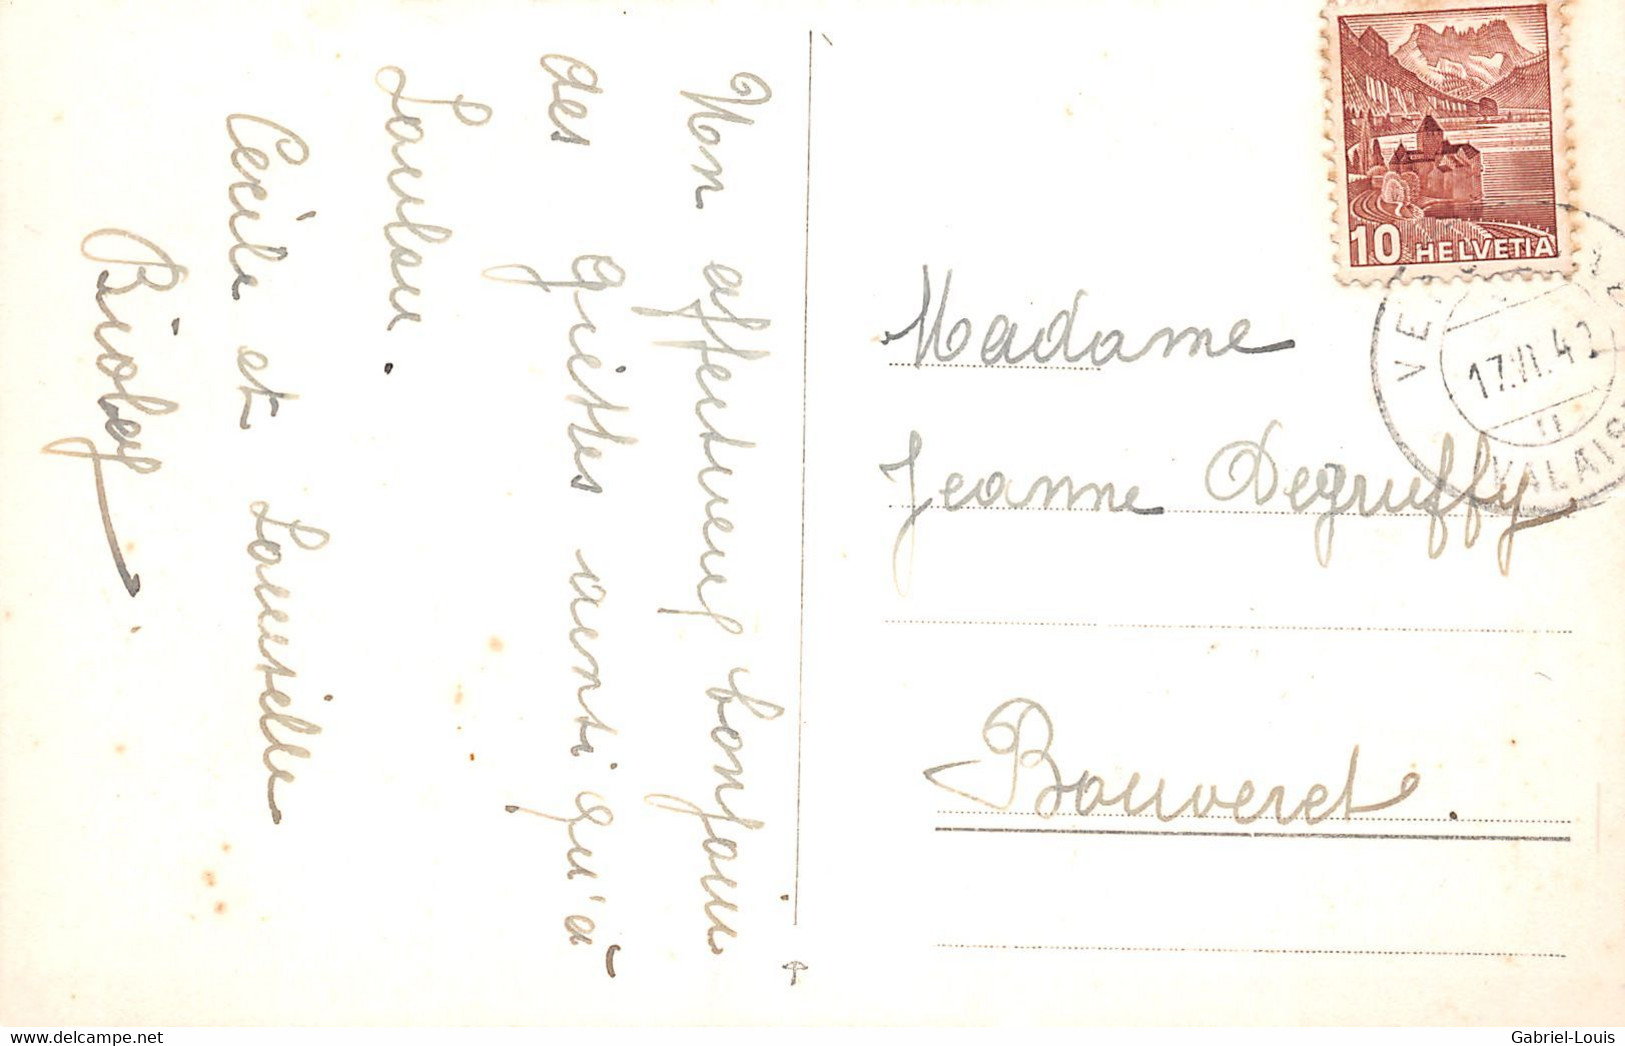 Un affectueux bonjour
des Giètes ainsi qu'à
Loulou.
Cécile et Louiselle
Bioley
10 HELVETIA
17.VI.42
VALAIS
Madame
Jeanne Degruffy
Bouveret.
delcampe.net
Gabriel-Louis